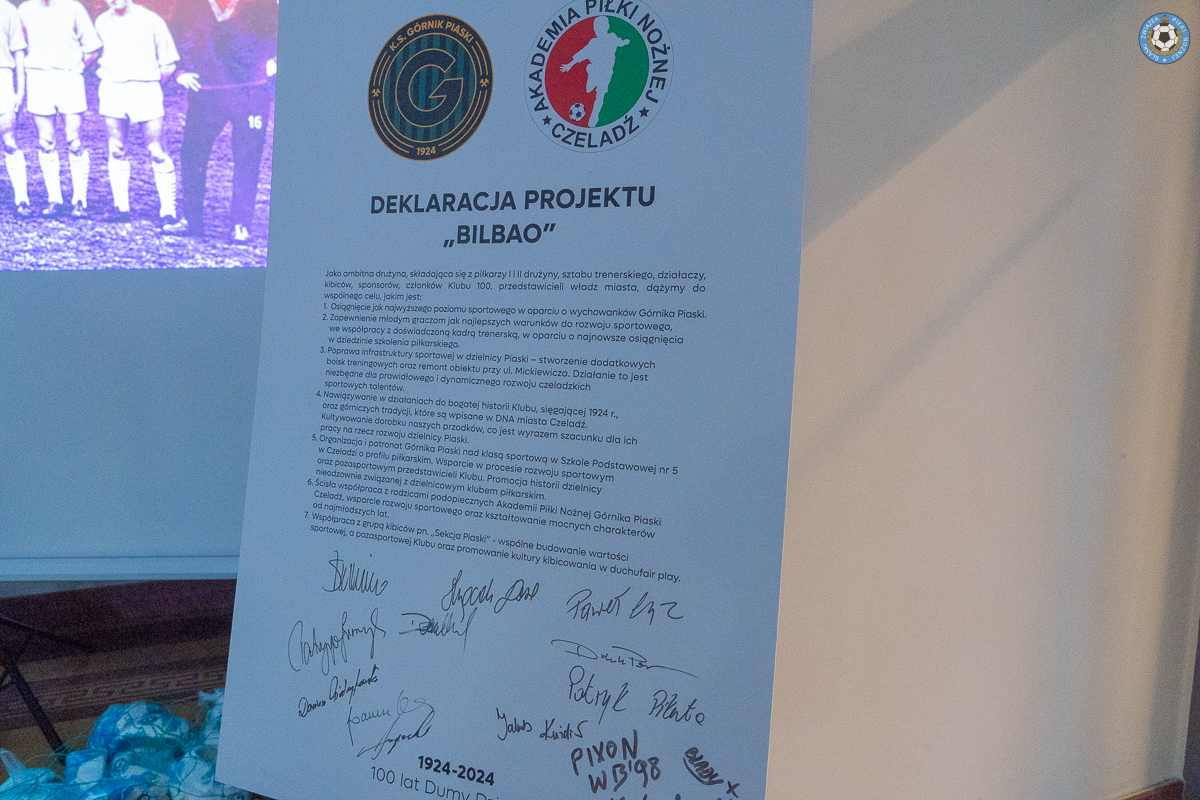 ŚLĄSKI ZWIĄZEK PIŁKI NOŻNEJ
K.S. GÓRNIK PIASKI
G
1924
AKADEMIA PIŁKI NOŻNEJ
CZELADŹ
16
DEKLARACJA PROJEKTU
„BILBAO”
Jako ambitna drużyna, składająca się z piłkarzy I i II drużyny, sztabu trenerskiego, działaczy,
kibiców, sponsorów, członków Klubu 100, przedstawicieli władz miasta, dążymy do
wspólnego celu, jakim jest:
1. Osiągnięcie jak najwyższego poziomu sportowego w oparciu o wychowanków Górnika Piaski.
2. Zapewnienie młodym graczom jak najlepszych warunków do rozwoju sportowego,
we współpracy z doświadczoną kadrą trenerską, w oparciu o najnowsze osiągnięcia
w dziedzinie szkolenia piłkarskiego.
3. Poprawa infrastruktury sportowej w dzielnicy Piaski – stworzenie dodatkowych
boisk treningowych oraz remont obiektu przy ul. Mickiewicza. Działanie to jest
niezbędne dla prawidłowego i dynamicznego rozwoju czeladzkich
sportowych talentów.
4. Nawiązywanie w działaniach do bogatej historii Klubu, sięgającej 1924 r.,
oraz górniczych tradycji, które są wpisane w DNA miasta Czeladź.
Kultywowanie dorobku naszych przodków, co jest wyrazem szacunku dla ich
pracy na rzecz rozwoju dzielnicy Piaski.
5. Organizacja i patronat Górnika Piaski nad klasą sportową w Szkole Podstawowej nr 5
w Czeladzi o profilu piłkarskim. Wsparcie w procesie rozwoju sportowym
oraz pozasportowym przedstawicieli Klubu. Promocja historii dzielnicy
nieodzownie związanej z dzielnicowym klubem piłkarskim.
6. Ścisła współpraca z rodzicami podopiecznych Akademii Piłki Nożnej Górnika Piaski
Czeladź, wsparcie rozwoju sportowego oraz kształtowanie mocnych charakterów
od najmłodszych lat.
7. Współpraca z grupą kibiców pn. „Sekcja Piaski” - wspólne budowanie wartości
sportowej, a pozasportowej Klubu oraz promowanie kultury kibicowania w duchufair play.
Paweł
Patryk
PIXON
WB'98
1924-2024
100 lat Dumy